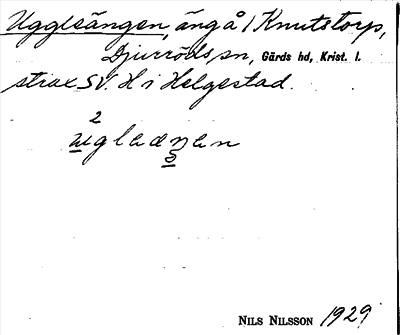 Ugglesängen, äng å 1 Knutstorp,
Djurröds sn, Gärds hd, Krist. l.
strax SV. H i Helgestad.
2
uglæŋæn
NILS NILSSON 1929